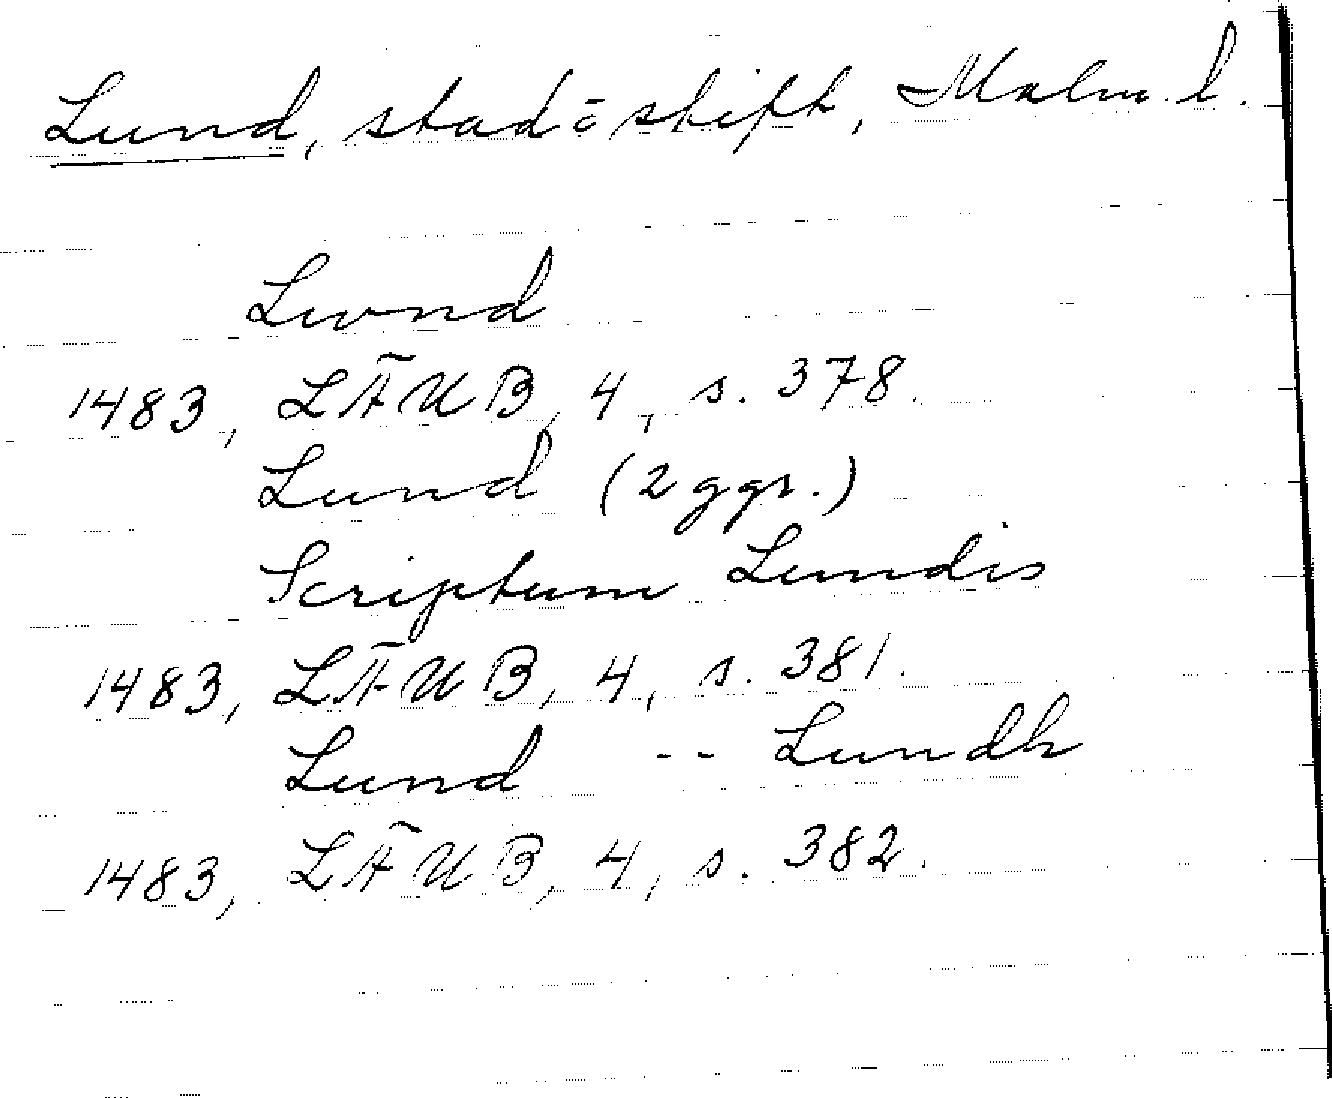 Lund, stad o. stift, Malm. l.
Lwnd
1483, LÄUB, 4, s. 378.
Lund (2 ggr.)
Scriptum Lundis
1483, LÄUB, 4, s. 381.
Lund -- Lundh
1483, LÄUB, 4, s. 382.